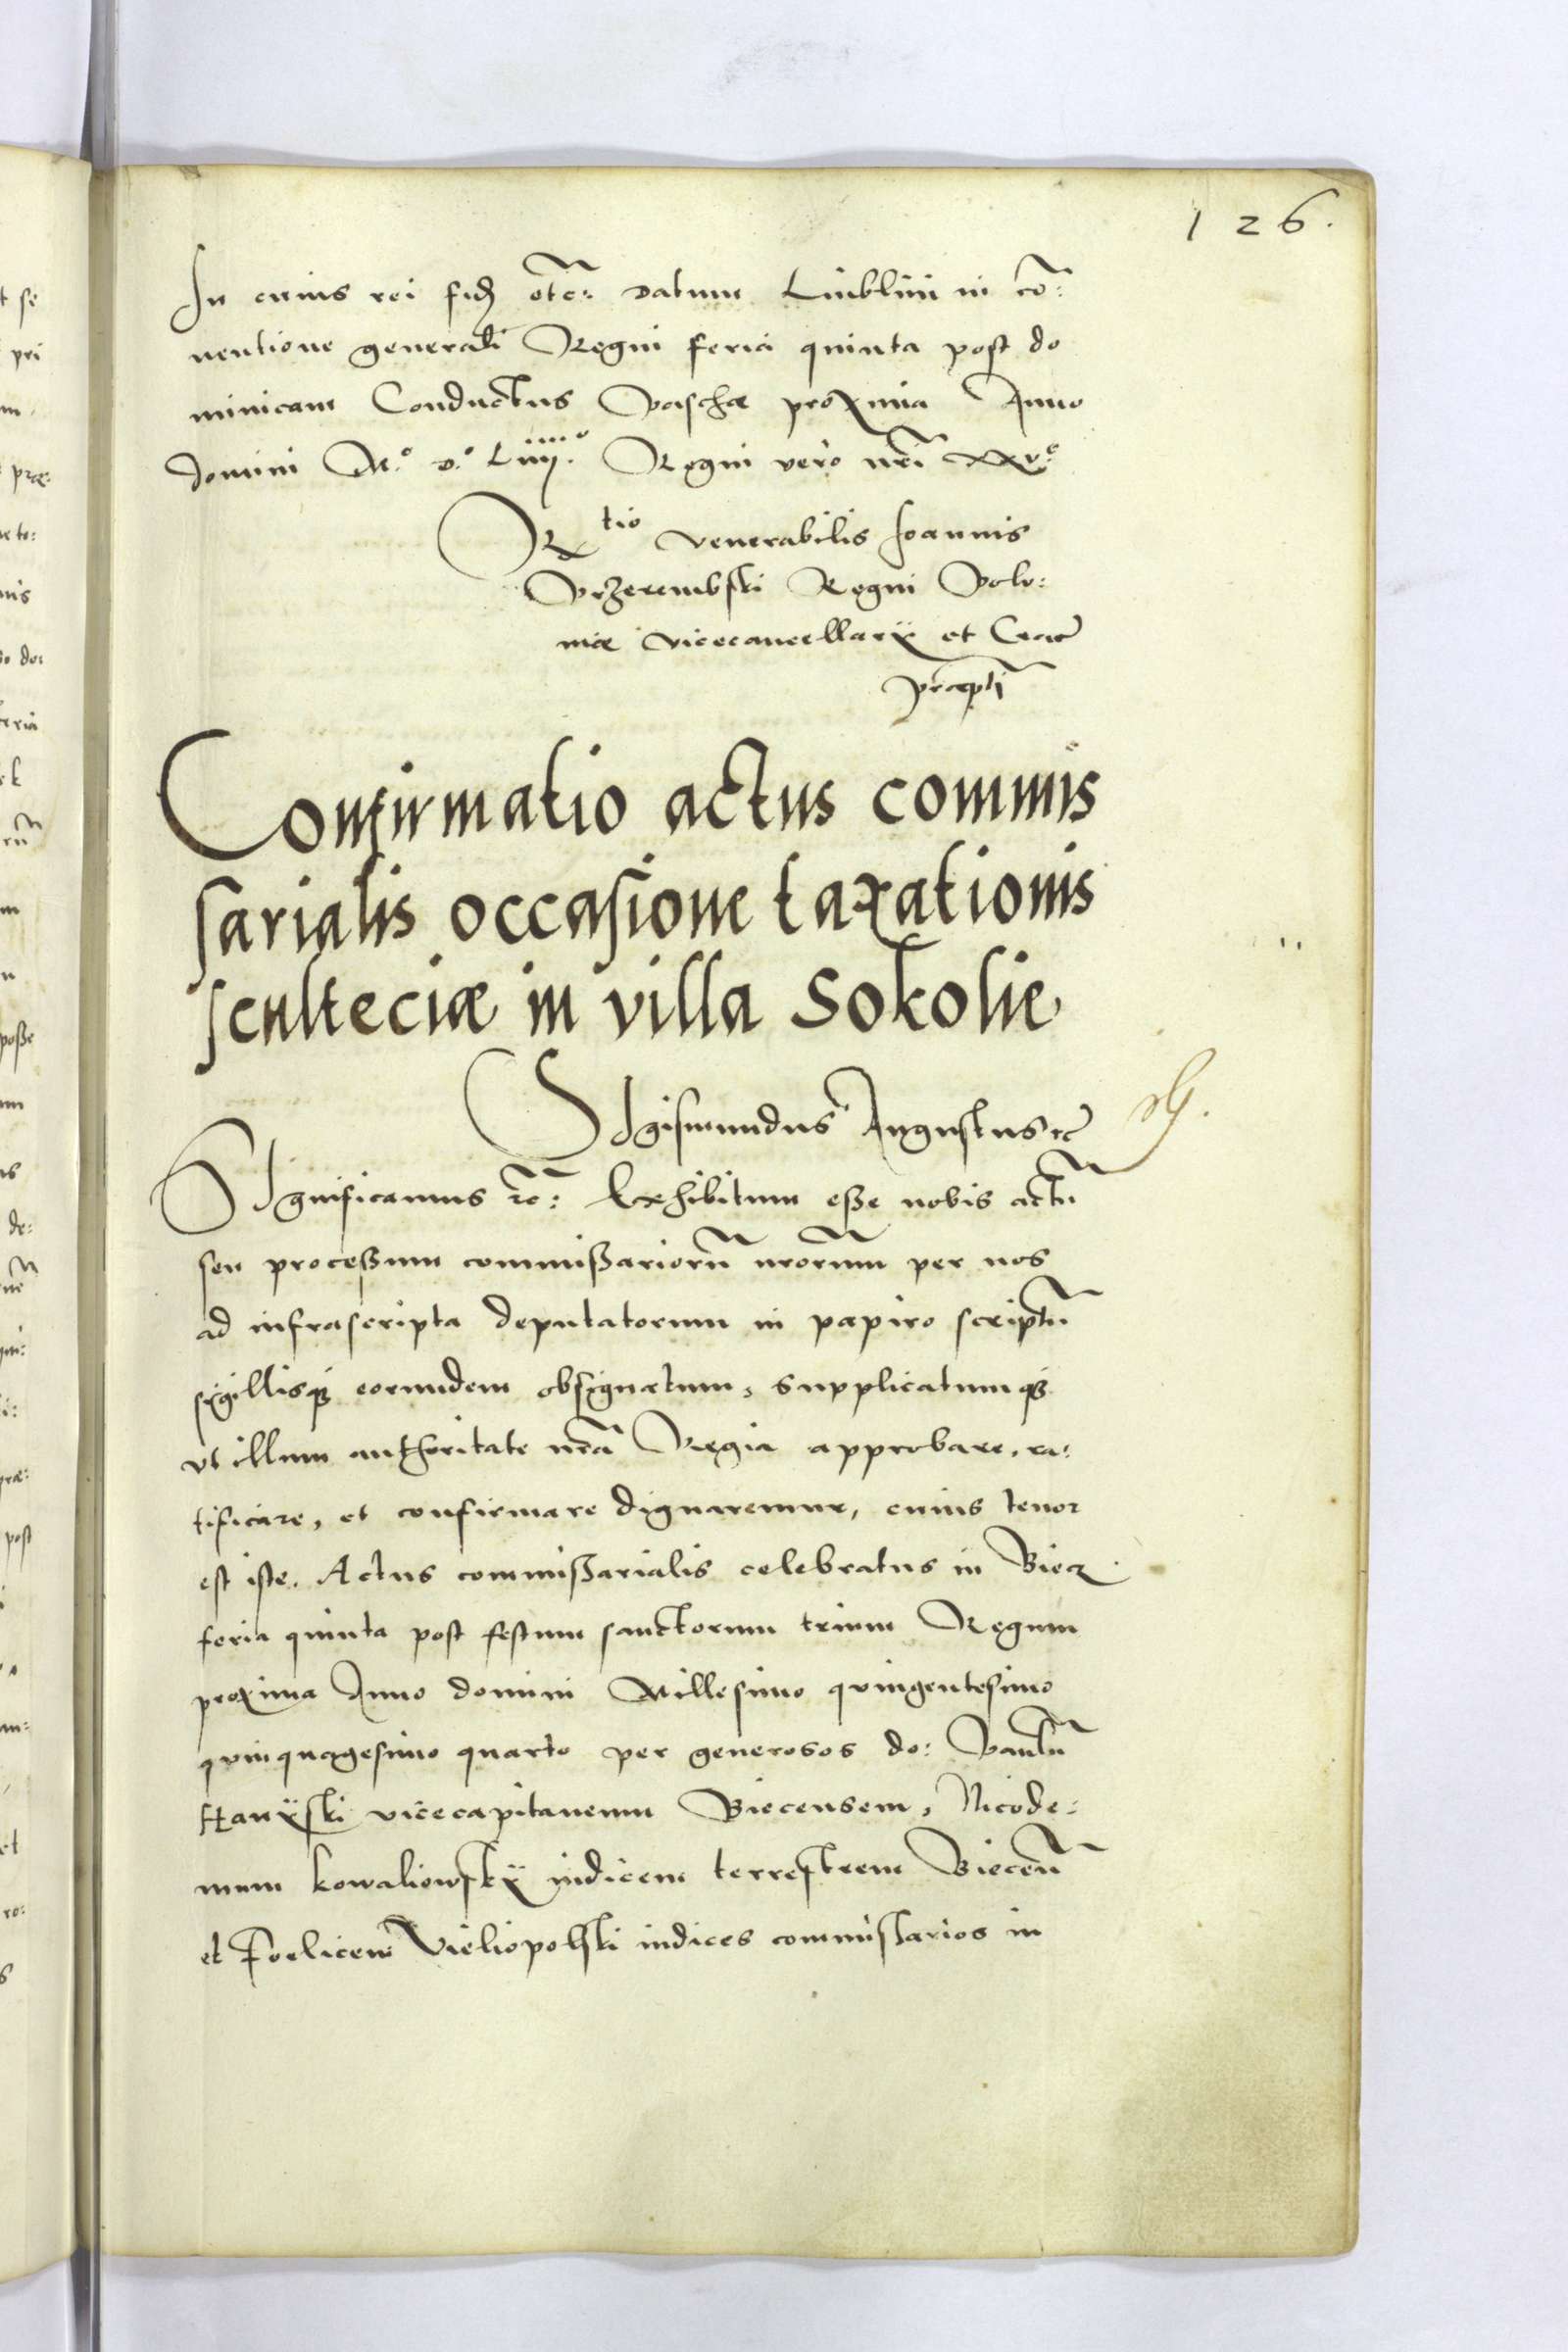 126.
In cuius rei fidẽ etc: Datum Liublini in cõ:
ventione generali Regni feria quinta post do
minicam Conductus Paschæ proxima Anno
domini M.º D.º Liiij.º Regni vero nr̃i xxv.º
R tio venerabilis Joannis
Przerembski Regni Polo:
niæ vicecancellarÿ et Crac̃
præpti
Confirmatio actus commis
sarialis occasione taxationis
sculteciæ in villa Sokolie
SIgismundus Augustus &c̃
SIgnificamus &c̃: Exhibitum esse nobis actũ
seu processum commissariorũ nr̃orum per nos
ad infrascripta deputatorum in papiro scriptũ
sigillisq; eorundem obsignatum, supplicatumq;
ut illum authoritate nr̃a Regia approbare, ra:
tificare, et confirmare dignaremur, cuius tenor
est iste. Actus commissarialis celebratus in Biecz
feria quinta post festum sanctorum trium Regum
proxima Anno domini Millesimo quingentesimo
quinquagesimo quarto per generosos do: Paulũ
Hanÿski vicecapitaneum Biecensem, Nicode:
mum kowaliowskÿ iudicem terrestrem Biecen̄
et Foelicem Vieliopolski iudices commissarios in